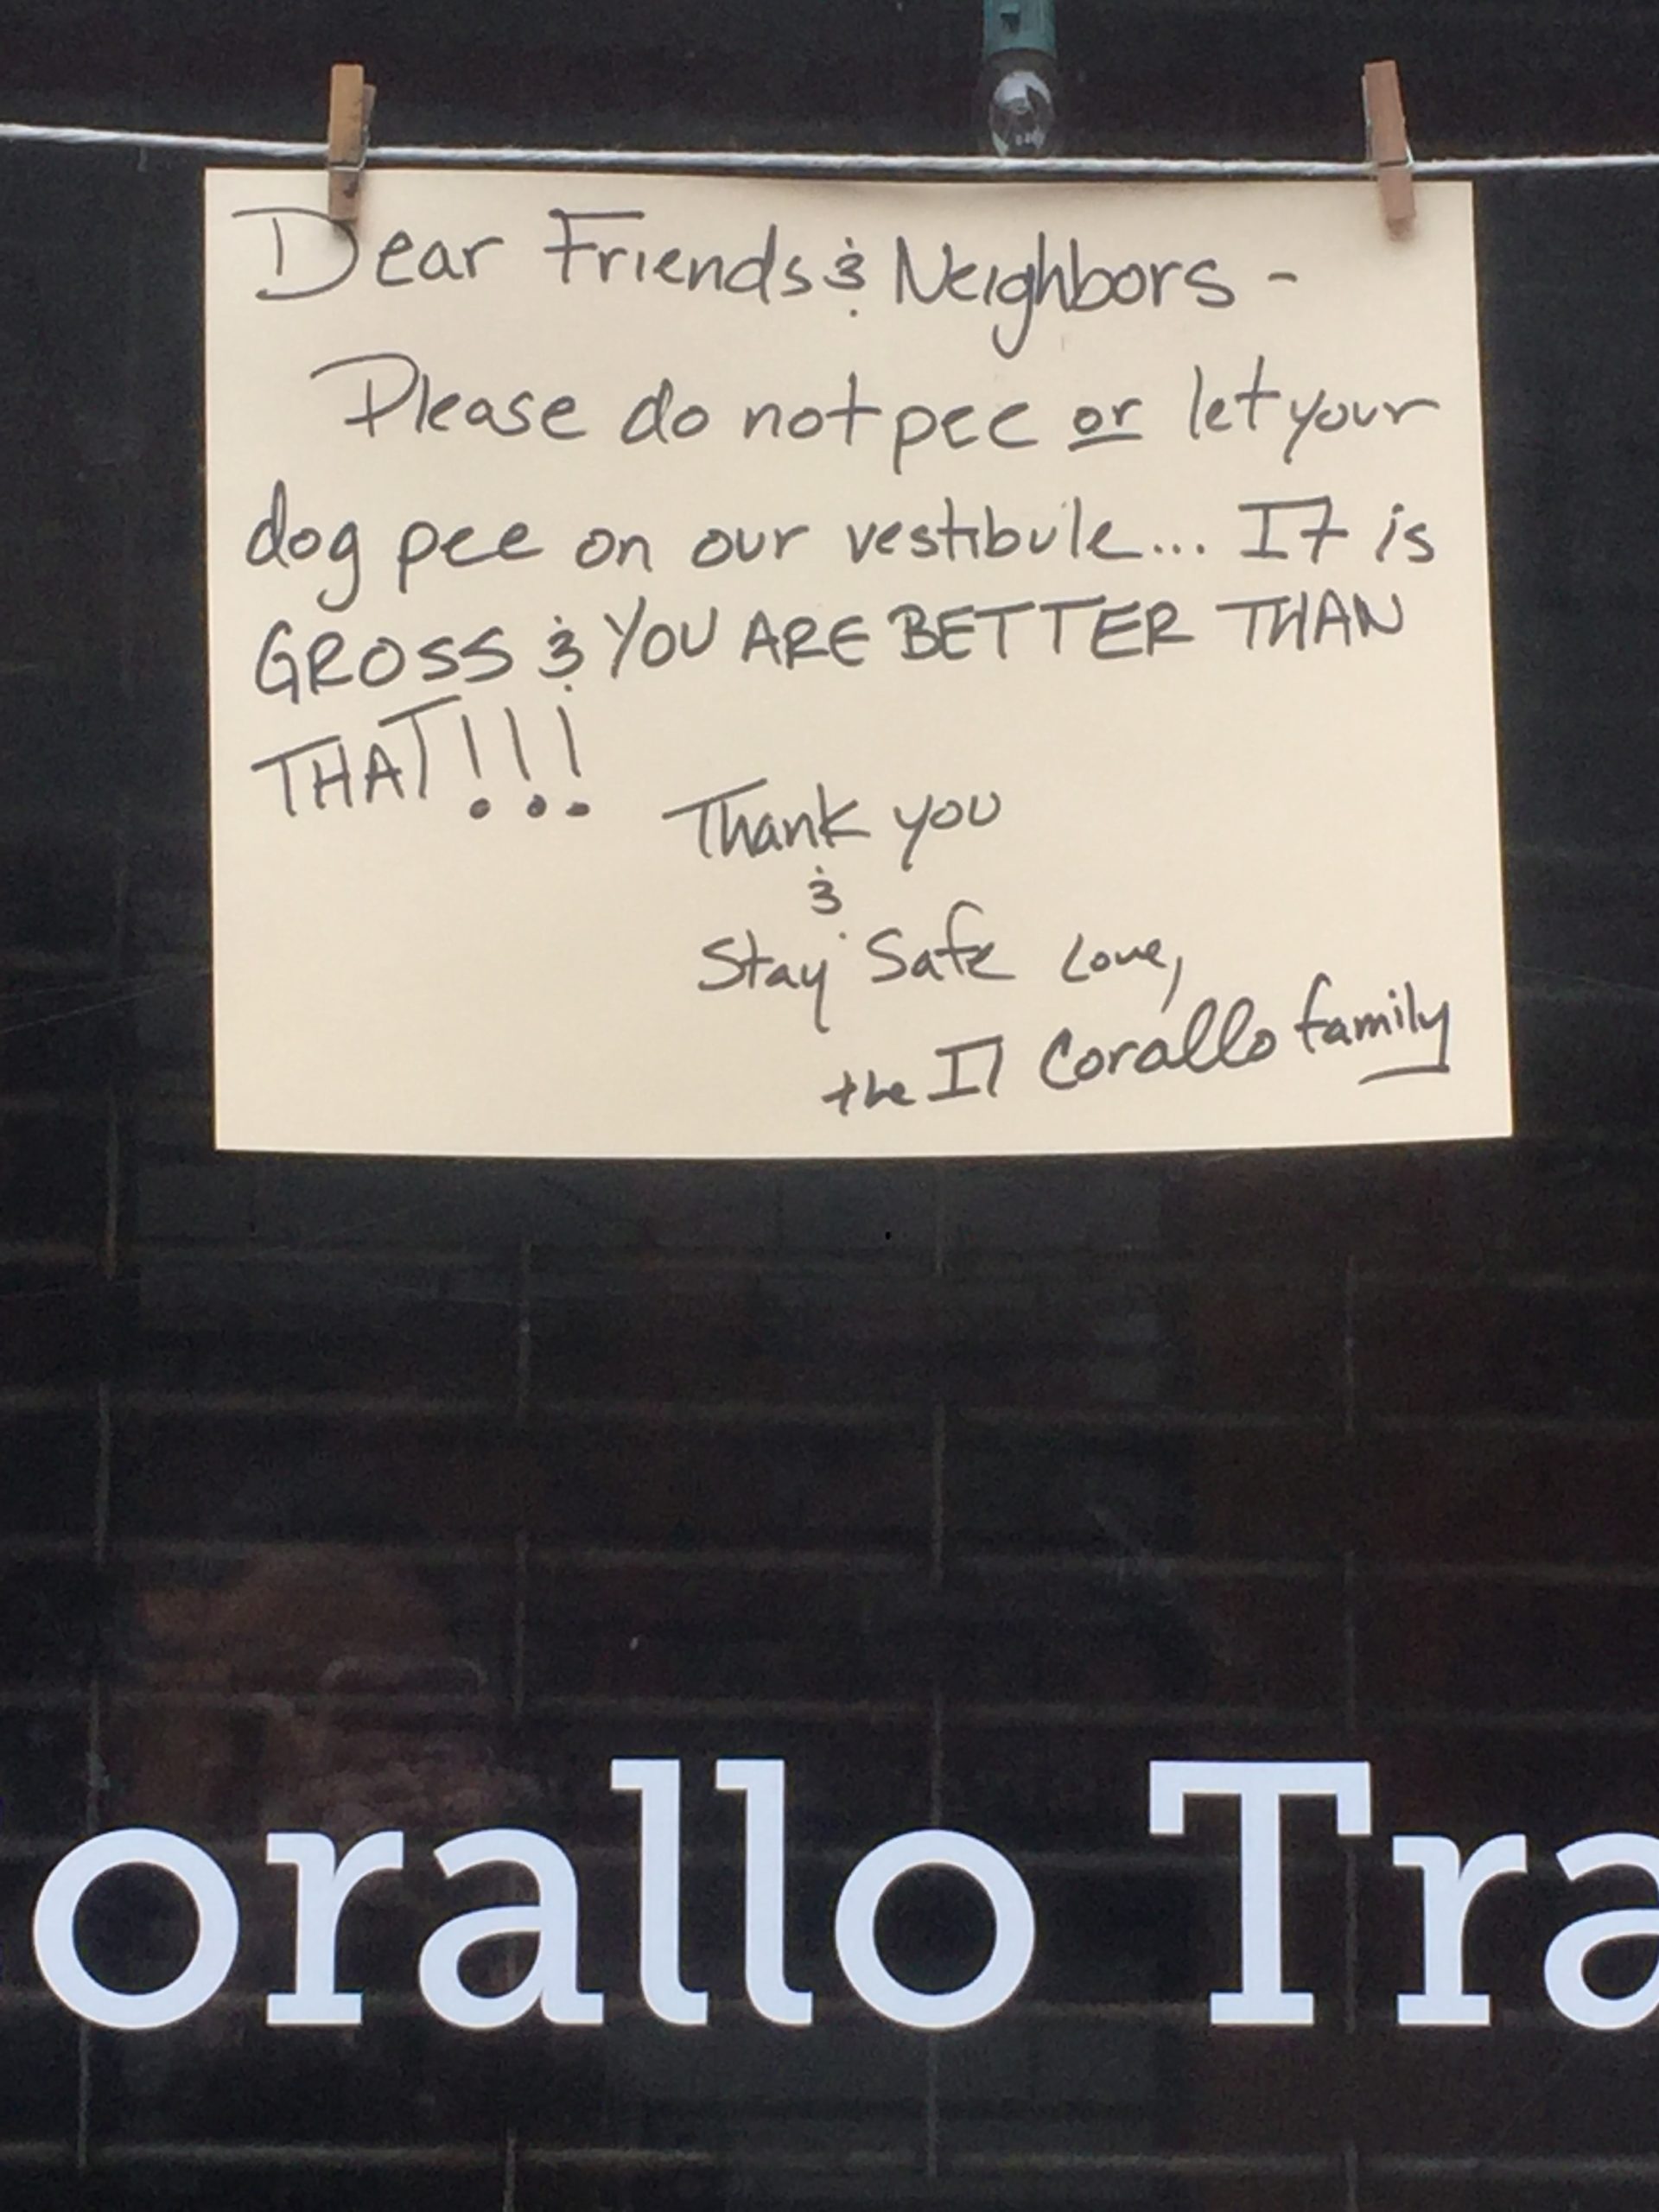 Dear Friends & Neighbors -
Please do not pee or let your
dog pee on our vestibule... It is
GROSS & YOU ARE BETTER THAN
THAT!!!
Thank you
&
Stay Safe Love,
the Il Corallo family
orallo Tra